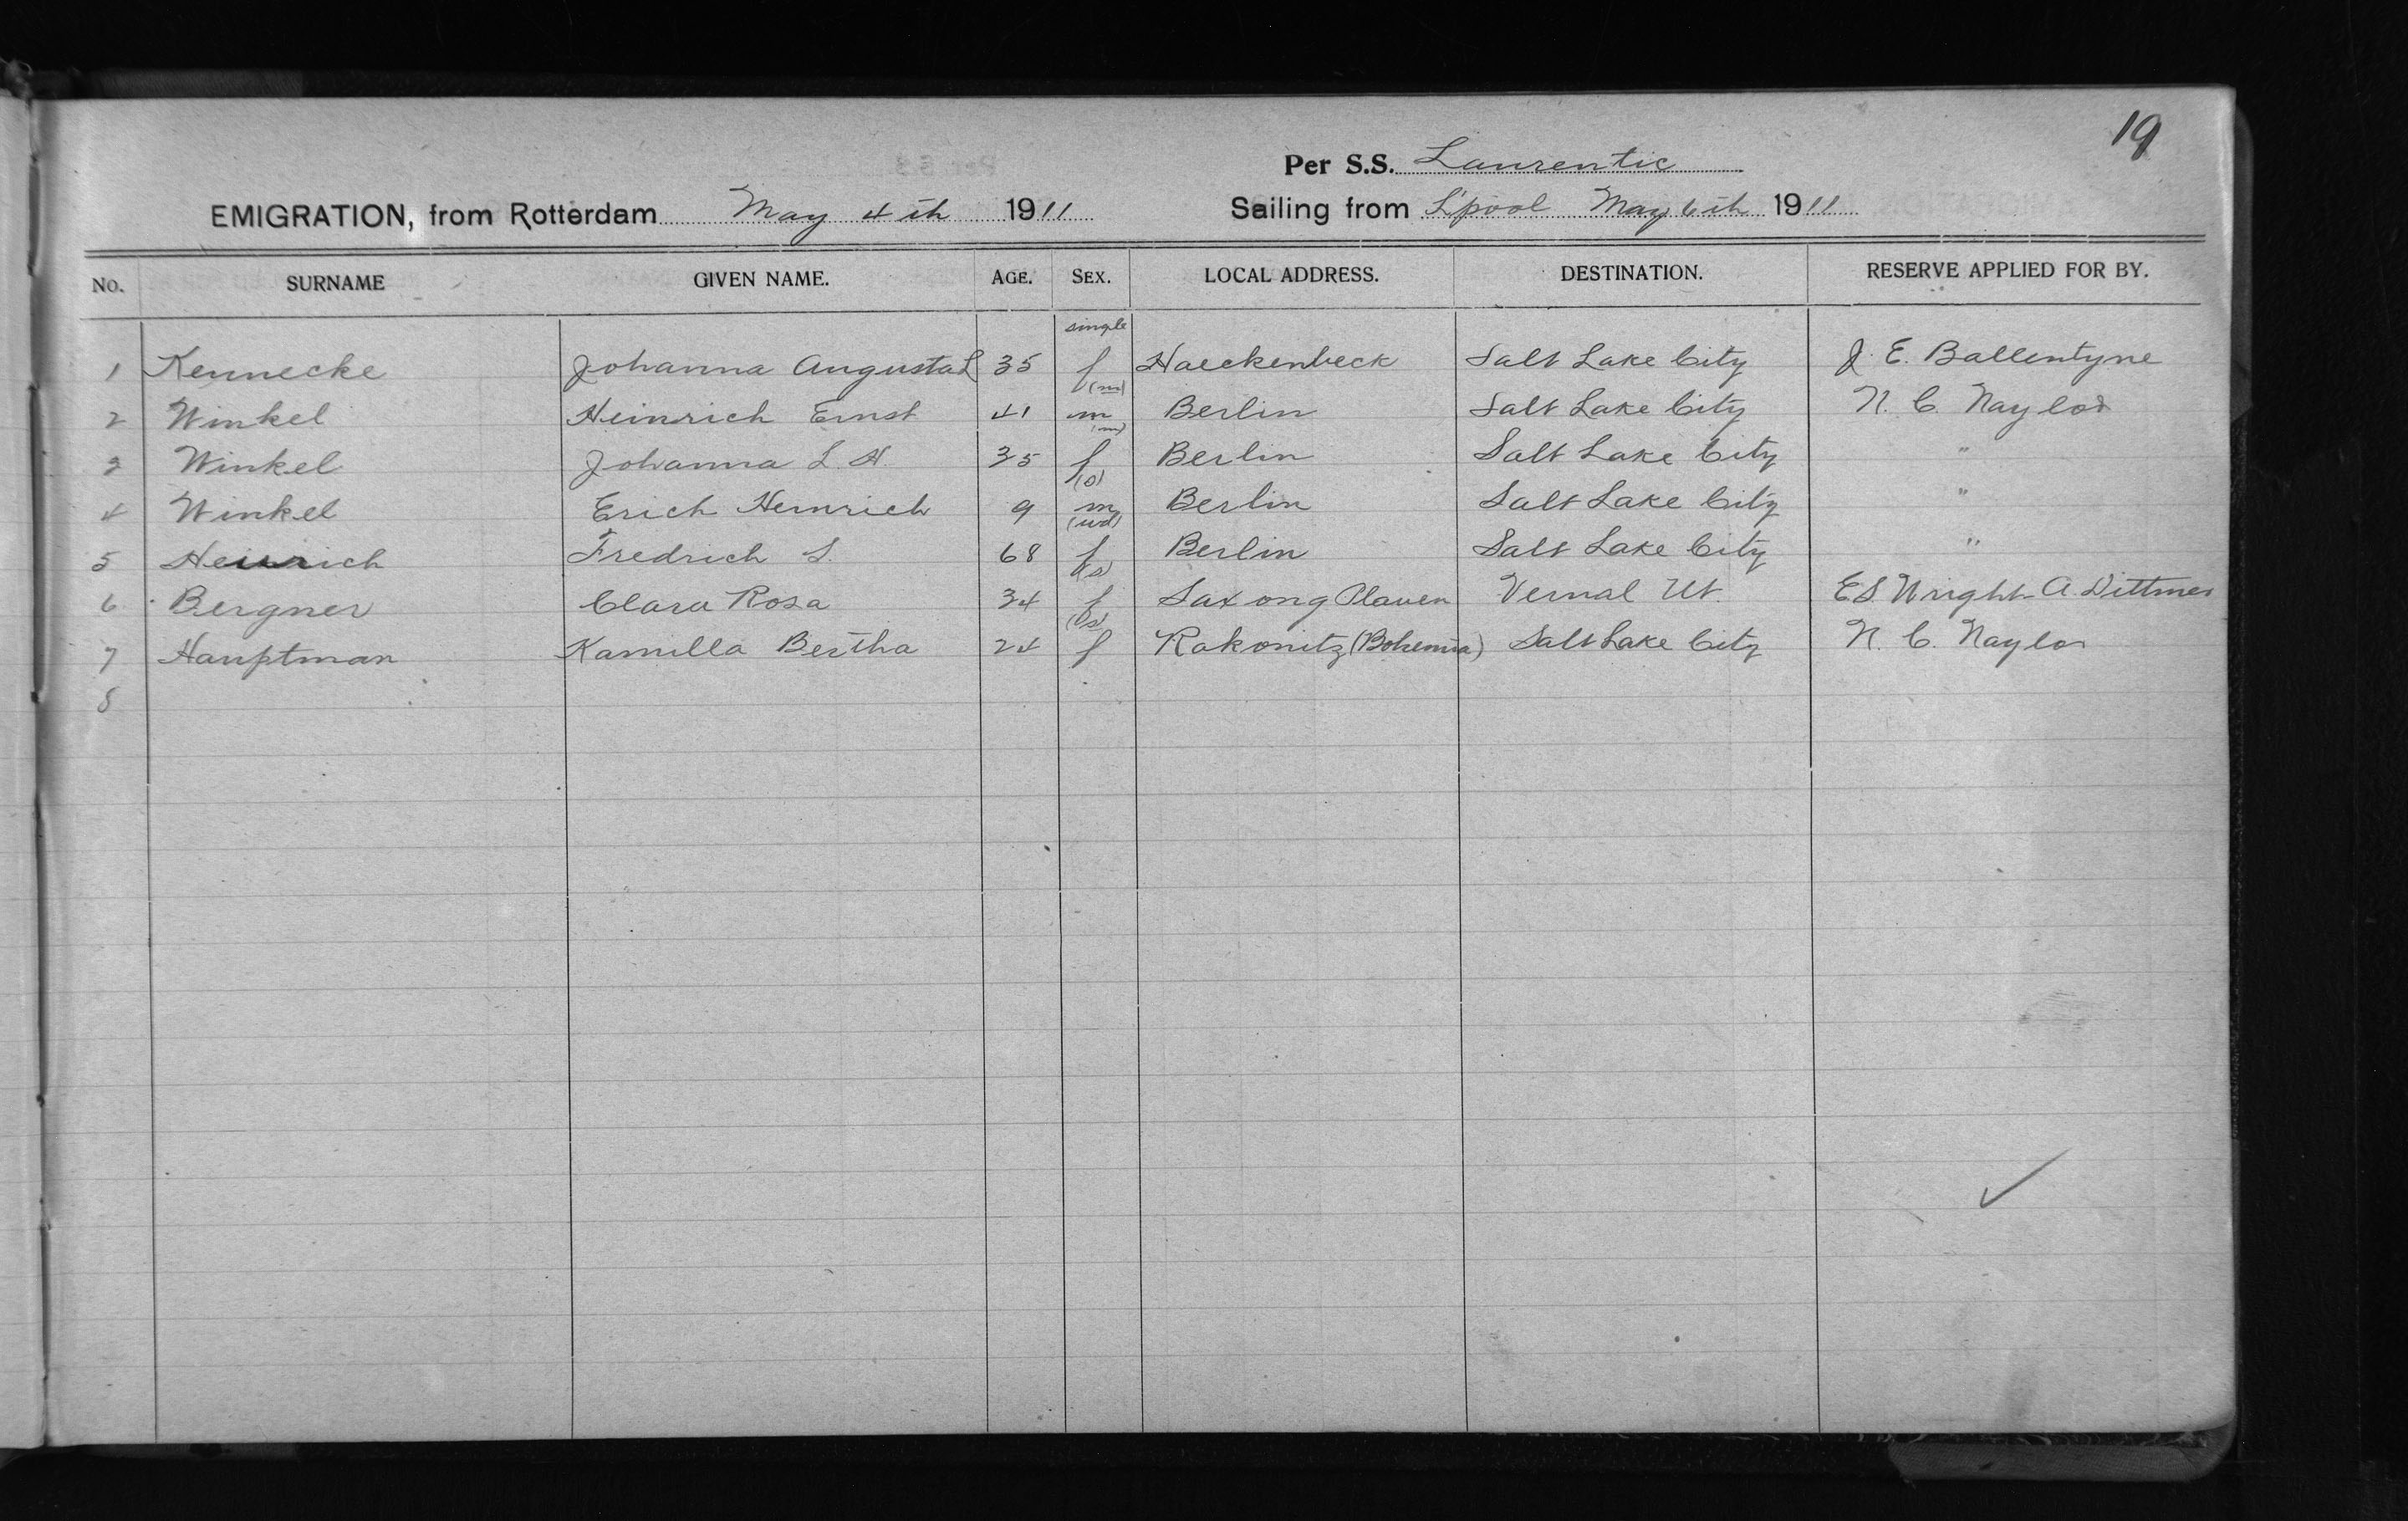 19
Per S.S. Laurentic
EMIGRATION, from Rotterdam May 4th 1911 Sailing from L'pool May 6th 1911
No. SURNAME GIVEN NAME. AGE. SEX. LOCAL ADDRESS. DESTINATION. RESERVE APPLIED FOR BY.
single
1 Kennecke Johanna Augusta L 35 f Haeckenbeck Salt Lake City J. E. Ballentyne
(m)
2 Winkel Heinrich Ernst 41 m Berlin Salt Lake City N. C. Naylor
(m)
3 Winkel Johanna L. H. 35 f Berlin Salt Lake City "
(s)
4 Winkel Erich Heinrich 9 m Berlin Salt Lake City "
(wd)
5 Heinrich Fredrich S. 68 f Berlin Salt Lake City "
(s)
6 Bergner Clara Rosa 34 f Saxony Plauen Vernal Ut. E S. Wright - A. Dittmer
(s)
7 Hauptman Kamilla Bertha 24 f Rakonitz (Bohemia) Salt Lake City N. C. Naylor
8